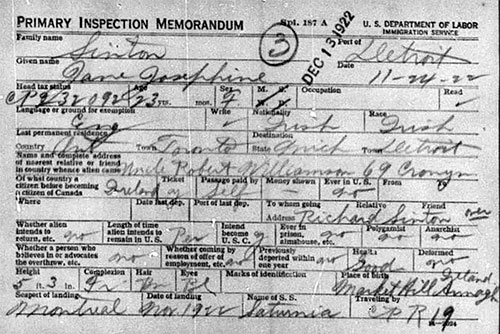 PRIMARY INSPECTION MEMORANDUM SPL. 187 A U. S. DEPARTMENT OF LABOR
IMMIGRATION SERVICE
Family name Sinton 3 DEC 13 1922 Port of Detroit
Given name Jane Josephine Date 11-24-22
Head tax status Age Sex M. S. Occupation Read
23 yrs. mos. F W. D.
Language or ground for exemption Write Race
Eng Irish Irish
Last permanent residence Destination
Country Ont Town Toronto State Mich Town Detroit
Name and complete address
of nearest relative or friend
in country whence alien came Uncle Robert Williamson 69 Cronyn
Of what country a Ticket Passage paid by Money shown Ever in U. S. From To
citizen before becoming
a citizen of Canada Ireland Self no
Where Date last dep. Port of last dep. To whom going Relative Friend
Address Richard Sinton over
Whether alien Length of time Intend Ever in Polygamist Anarchist
intends to alien intends to become prison,
return, etc. no remain in U.S. U.S.C. almshouse, etc. no no no
Whether a person who Whether coming by Previously Health Deformed
believes in or advocates reason of offer of deported within
the overthrow, etc. no employment, etc. one year Good no
Height Complexion Hair Eyes Marks of identification Place of birth Ireland
5 ft. 3 in. Fr Br Bl Market Hill Armagh
Seaport of landing Date of landing Name of S. S. Traveling by
Montreal Nov 1922 Saturnia C P R 19